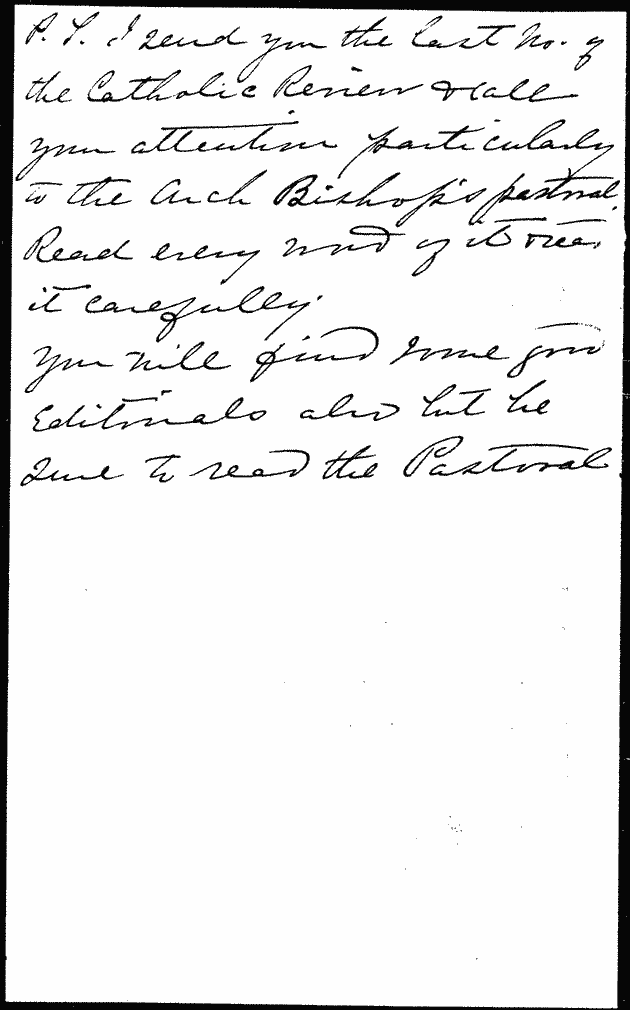 P. S. I send you the last No. of
the Catholic Review & call
your attention particularly
to the Arch Bishop's pastoral.
Read every word of it & read
it carefully.
You will find some good
Editorials also but be
sure to read the Pastoral.